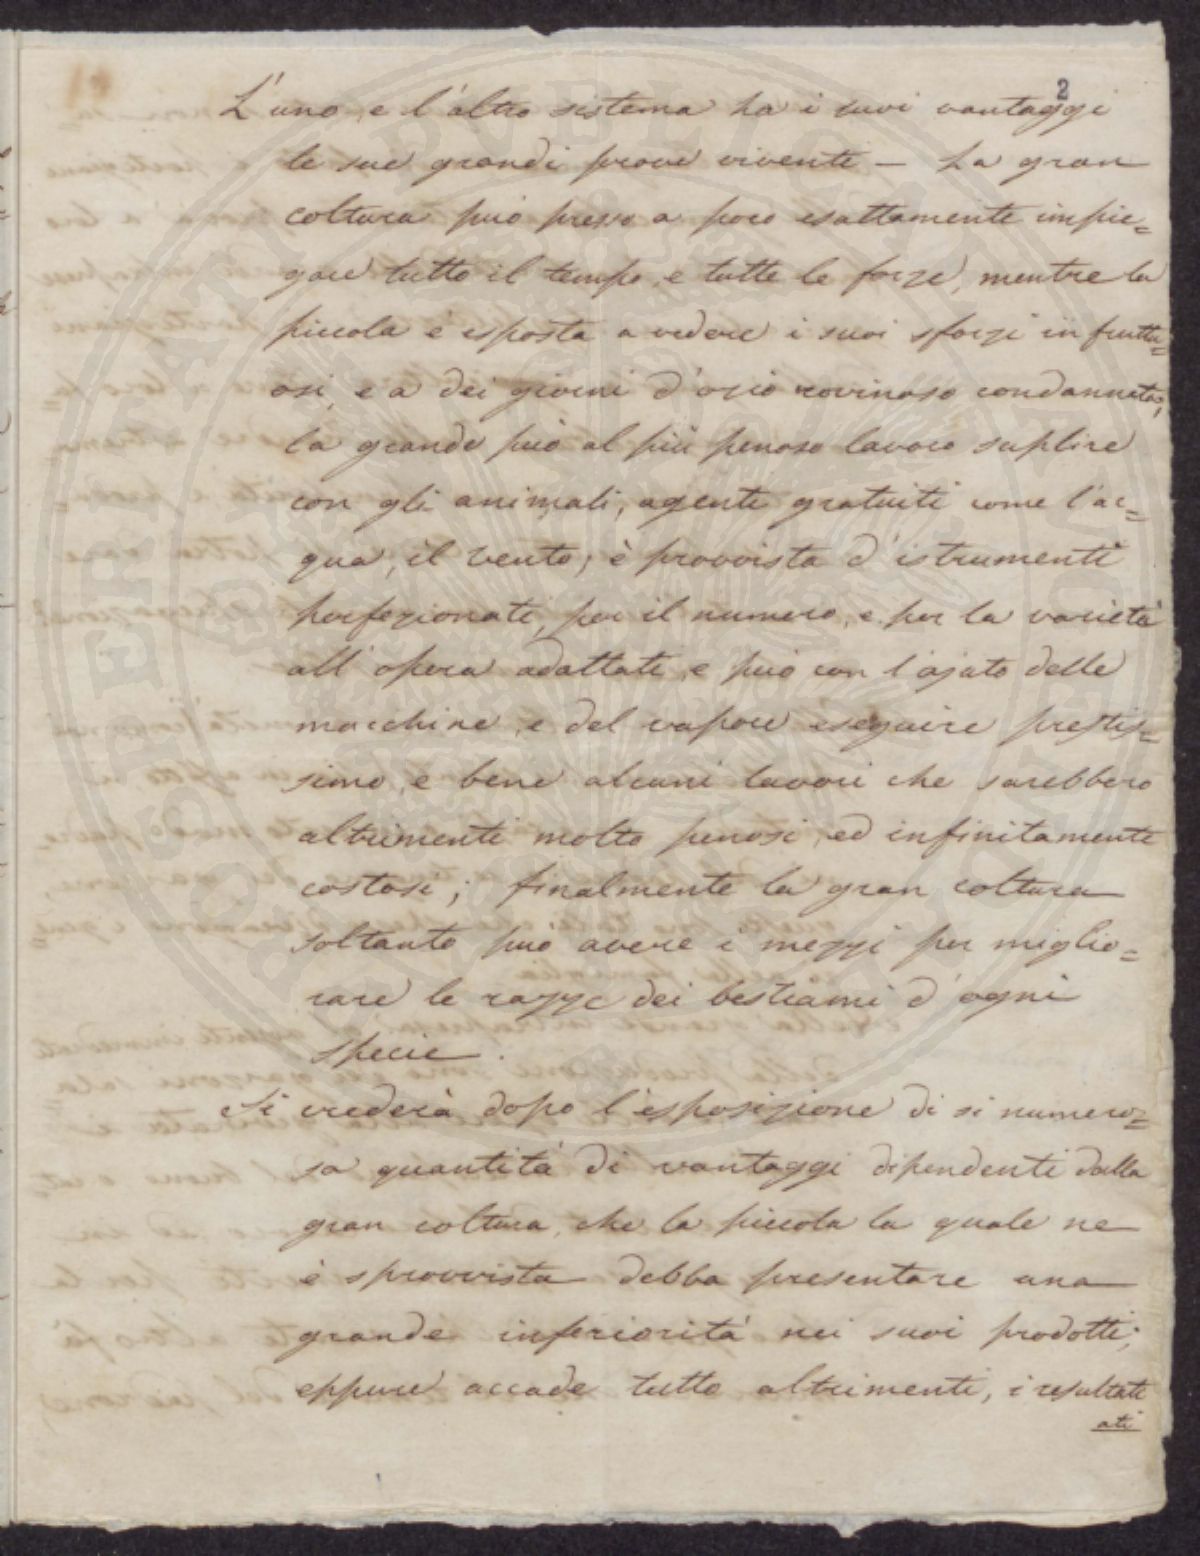 2
L'uno, e l'altro sistema ha i suoi vantaggi
le sue grandi prove vivente — La gran
coltura può presso a poco esattamente impie=
gare tutto il tempo, e tutte le forze, mentre la
piccola è esposta a vedere i suoi sforzi infruttu=
osi, e a dei giorni d'ozio rovinoso condannata;
la grande può al più penoso lavoro suplire
con gli animali, agenti gratuiti come l'ac=
qua, il vento; è provvista d'istrumenti
perfezionati, per il numero, e per la varietà
all'opera adattati, e può con l'ajuto delle
macchine, e del vapore eseguire prestis=
simo, e bene alcuni lavori che sarebbero
altrimenti molto penosi, ed infinitamente
costosi; finalmente la gran coltura
soltanto può avere i mezzi per miglio=
rare le razze dei bestiami d'ogni
specie.
Si crederà dopo l'esposizione di sì numero=
sa quantità di vantaggi dipendenti dalla
gran coltura, che la piccola la quale ne
è sprovvista debba presentare una
grande inferiorità nei suoi prodotti;
eppure accade tutto altrimenti, i resultati
ati